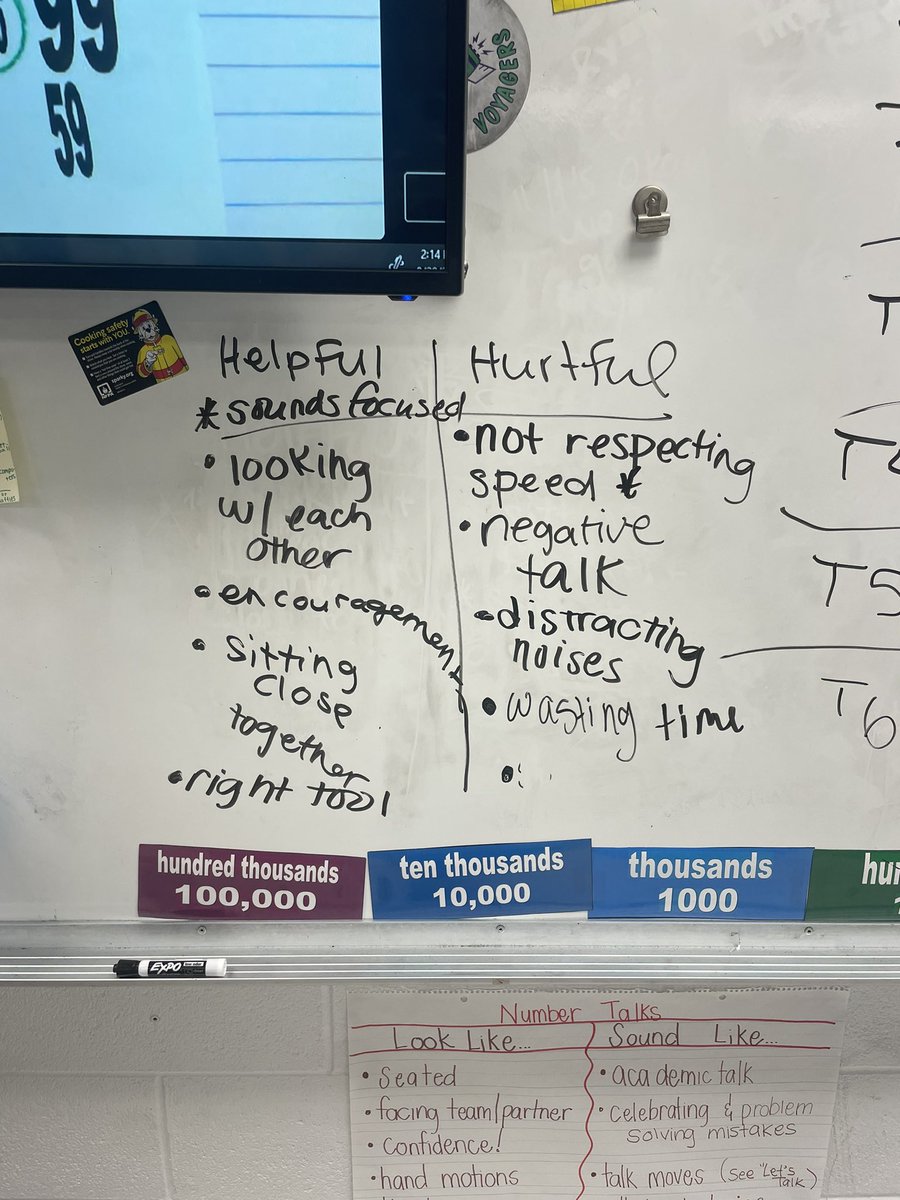 99
59
VOYAGERS
2:14
Cooking safety
starts with YOU.
sparky.org
Helpful
Hurtful
* sounds focused
• looking
w/ each
other
• encouragement
• sitting
close
together
• right tool
• not respecting
speed *
• negative
talk
• distracting
noises
• wasting time
•
T5
T6
hundred thousands
100,000
ten thousands
10,000
thousands
1000
EXPO
Number Talks
Look Like...
• Seated
• facing team/partner
• confidence!
• hand motions
Sound Like...
• academic talk
• celebrating & problem
solving mistakes
• talk moves (see "Let's
talk)